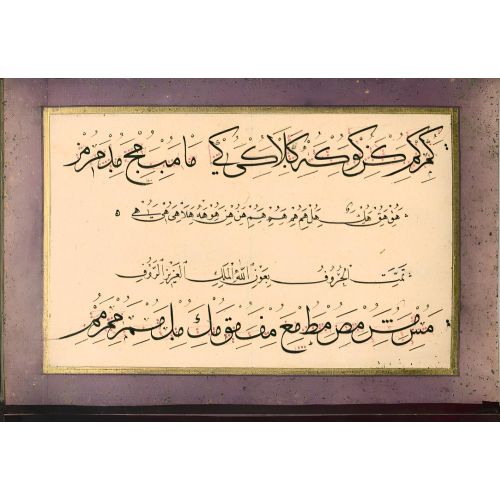 كم كم كن كو كه كلا كى كي ما مب مج مد مر
هق هك هل هم هم هم هم هن هن هو هه هلا هى هي
تمت الحروف بعون الله الملك العزيز الرؤف
مس مص مط مع مف مق مك مل مم مم